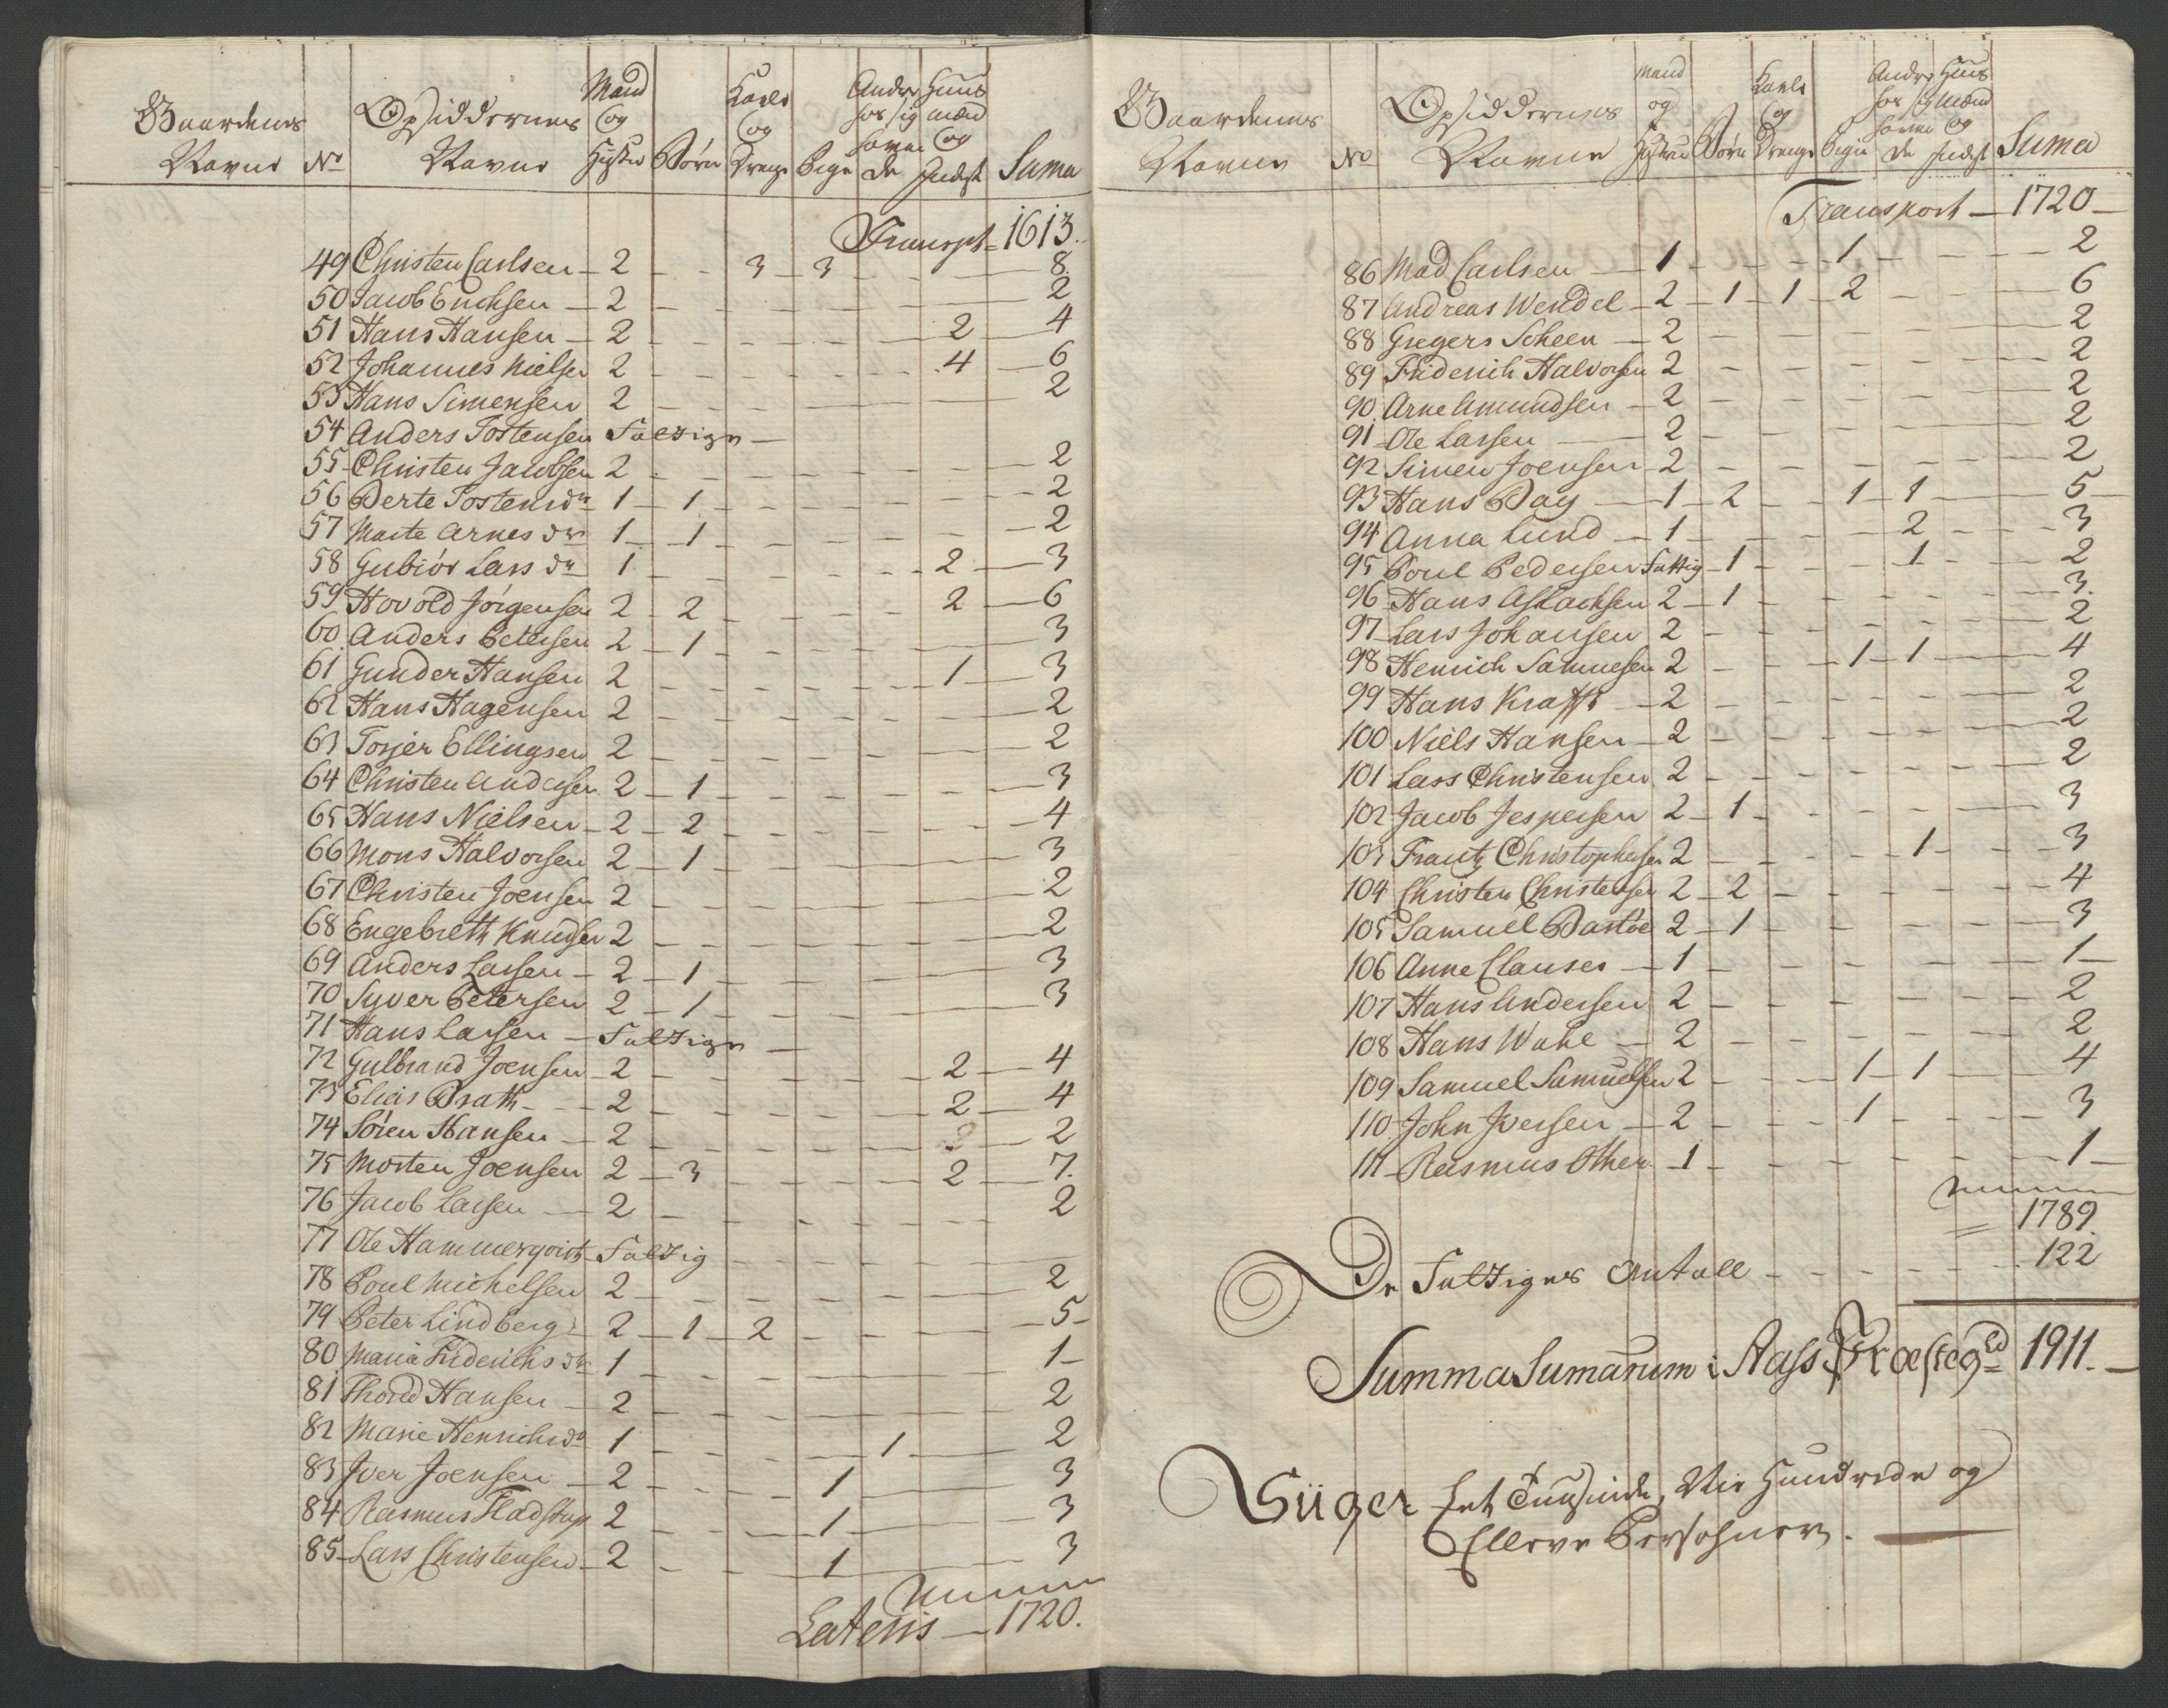 Gaardenes Navne No Opsiddernes Navne Mand og Hustru Børn Karle og Drenge Pige Andre for sig sœlve De Huus mænd og Inderst Suma
Transpt 1613.
49 Christen Carlsen 2 - - 3 3 - - 8.
50 Jacob Erichsen 2 - - - - - 2
51 Hans Hansen 2 - - - - 2 4
52 Johannes Nielsen 2 - - - - 4 6
53 Hans Simensen 2 - - - 2
54 Anders Tostensen Fattige
55 Christen Jacobsen 2 - - - - - 2
56 Berte Tostensdr 1 1 - - - - 2
57 Marte Arnesdr 1 1 - - - - 2
58 Gubiør Larsdr 1 - - - - 2 3
59 Hovold Jørgensen 2 2 - - - 2 6
60 Anders Petersen 2 1 - - - - 3
61 Gunder Hansen 2 - - - - 1 3
62 Hans Hagensen 2 - - - - - 2
63 Torjer Ellingsen 2 - - - - - 2
64 Christen Andersen 2 1 - - - - 3
65 Hans Nielsen 2 2 - - - - 4
66 Mons Halvorsen 2 1 - - - - 3
67 Christen Joensen 2 - - - - - 2
68 Engebreth Knudsen 2 - - - - - 2
69 Anders Larsen 2 1 - - - - 3
70 Syver Petersen 2 1 - - - - 3
71 Hans Larsen Fattige
72 Gulbrand Joensen 2 - - - - 2 4
73 Elias Brath 2 - - - - 2 4
74 Sören Hansen 2 - - - - 2
75 Morten Joensen 2 3 - - - 2 7.
76 Jacob Larsen 2 - - - - - 2
77 Ole Hammerqvist Fattig
78 Poul Michelsen 2 - - - - - 2
79 Peter Lindberg 2 1 2 - - - 5
80 Maria Friderichsdr 1 - - - - - 1
81 Thord Hansen 2 - - - - - 2
82 Marie Henrichsdr 1 - - - 1 - 2
83 Iver Joensen 2 - - 1 3
84 Rasmus Fladstrup 2 - - 1 3
85 Lars Christensen 2 - - 1 3
Lateris 1720.
Gaardenes Navne No Opsiddernes Navne Mand og Hustru Børn Karle og Drenge Pige Andre for sig sœlve De Huus Mænd og Inderst Suma
Transport 1720
86 Mad Carlsen 1 - - 1 - - 2
87 Andreas Wendel 2 1 1 2 - - 6
88 Gregers Scheen 2 - - - - - 2
89 Friderich Halvorsen 2 - - - - - 2
90 Arne Amundsen 2 - - - - - 2
91 Ole Larsen 2 - - - - - 2
92 Simen Joensen 2 - - - - - 2
93 Hans Bay 1 2 - 1 1 5
94 Anna Lund 1 - - - 2 - 3
95 Poul Pedersen Fattig 1 - - 1 - 2
96 Hans Aslachsen 2 1 - - - - 3.
97 Lars Johansen 2 - - - - - 2
98 Henrich Samuelsen 2 - - 1 1 4
99 Hans Krafft 2 - - - - - 2
100 Niels Hansen 2 - - - - - 2
101 Lars Christensen 2 - - - - - 2
102 Jacob Jespersen 2 1 - - - - 3
103 Frantz Christophersen 2 - - - 1 - 3
104 Christen Christensen 2 2 - - - - 4
105 Samuel Bastøe 2 1 - - - - 3
106 Anne Clauses 1 - - - - - 1
107 Hans Andersen 2 - - - - - 2
108 Hans Wahl 2 - - - - - 2
109 Samuel Samuelsen 2 - - 1 1 4
110 John Iversen 2 - - 1 - - 3
111 Rasmus Other 1 - - - - - 1
1789.
De Fattiges Antall 122
Summa Sumarum i Aass Præstegd 1911.
Siiger Eet Tuusinde, Nie Hundrede og
Elleve Persohner.